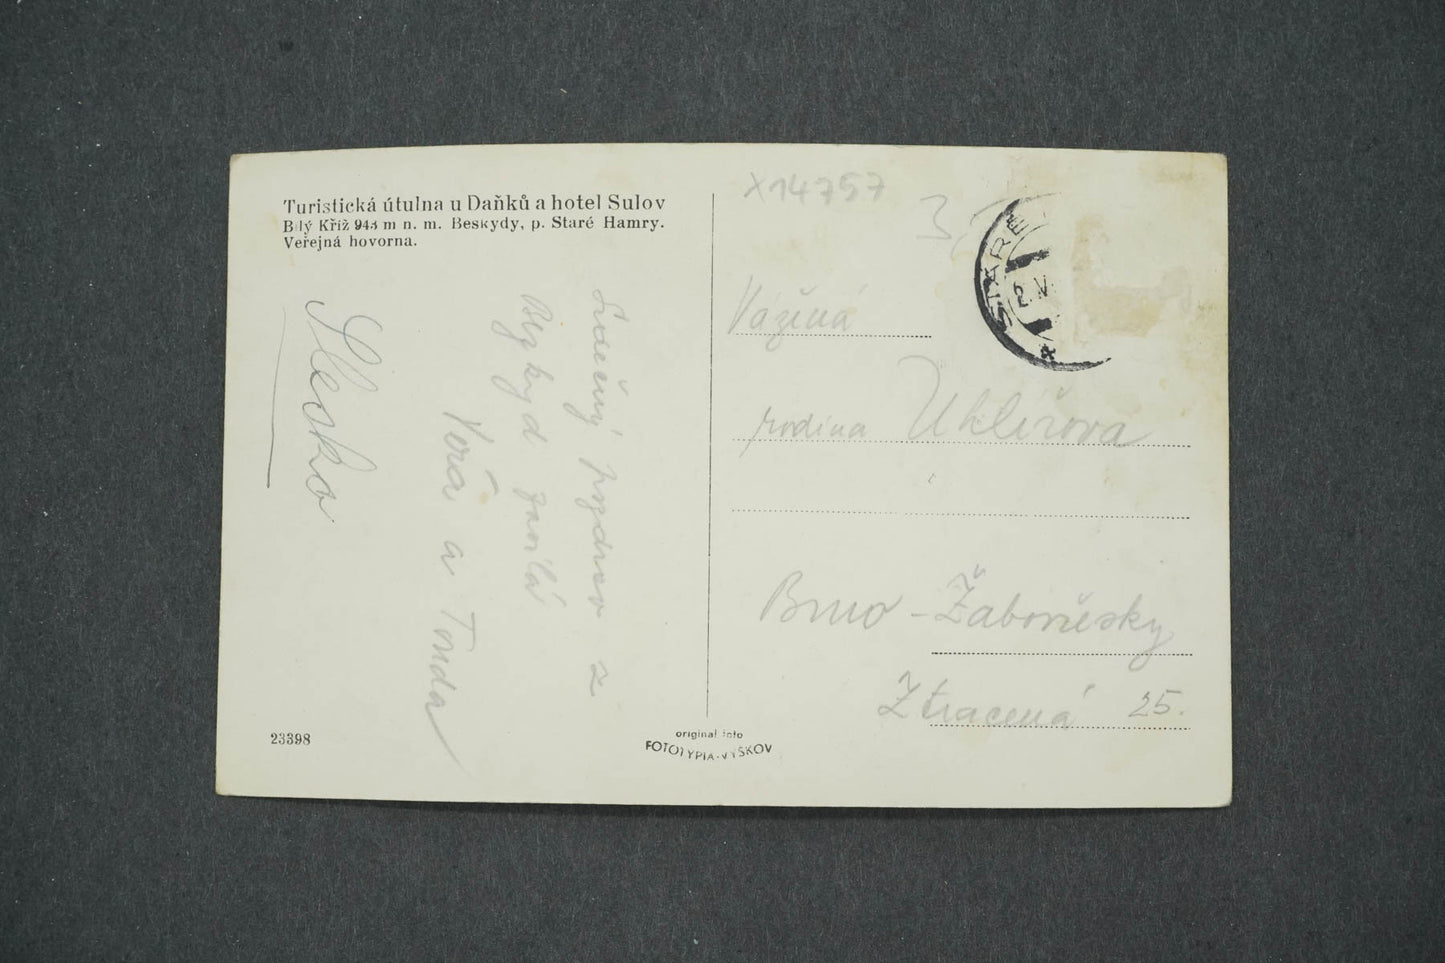 Turistická útulna u Daňků a hotel Sulov
Bílý Kříž 943 m n. m. Beskydy, p. Staré Hamry.
Veřejná hovorna.
Srdečný pozdrav z
Beskyd zasílá
Věra a Tonda
Slesko
23398
original foto
FOTOTYPIA-VYŠKOV
X14757
3
STARÉ
2. V
Vážená
rodina Uhlířova
Brno - Žabovřesky
Ztracená 25.